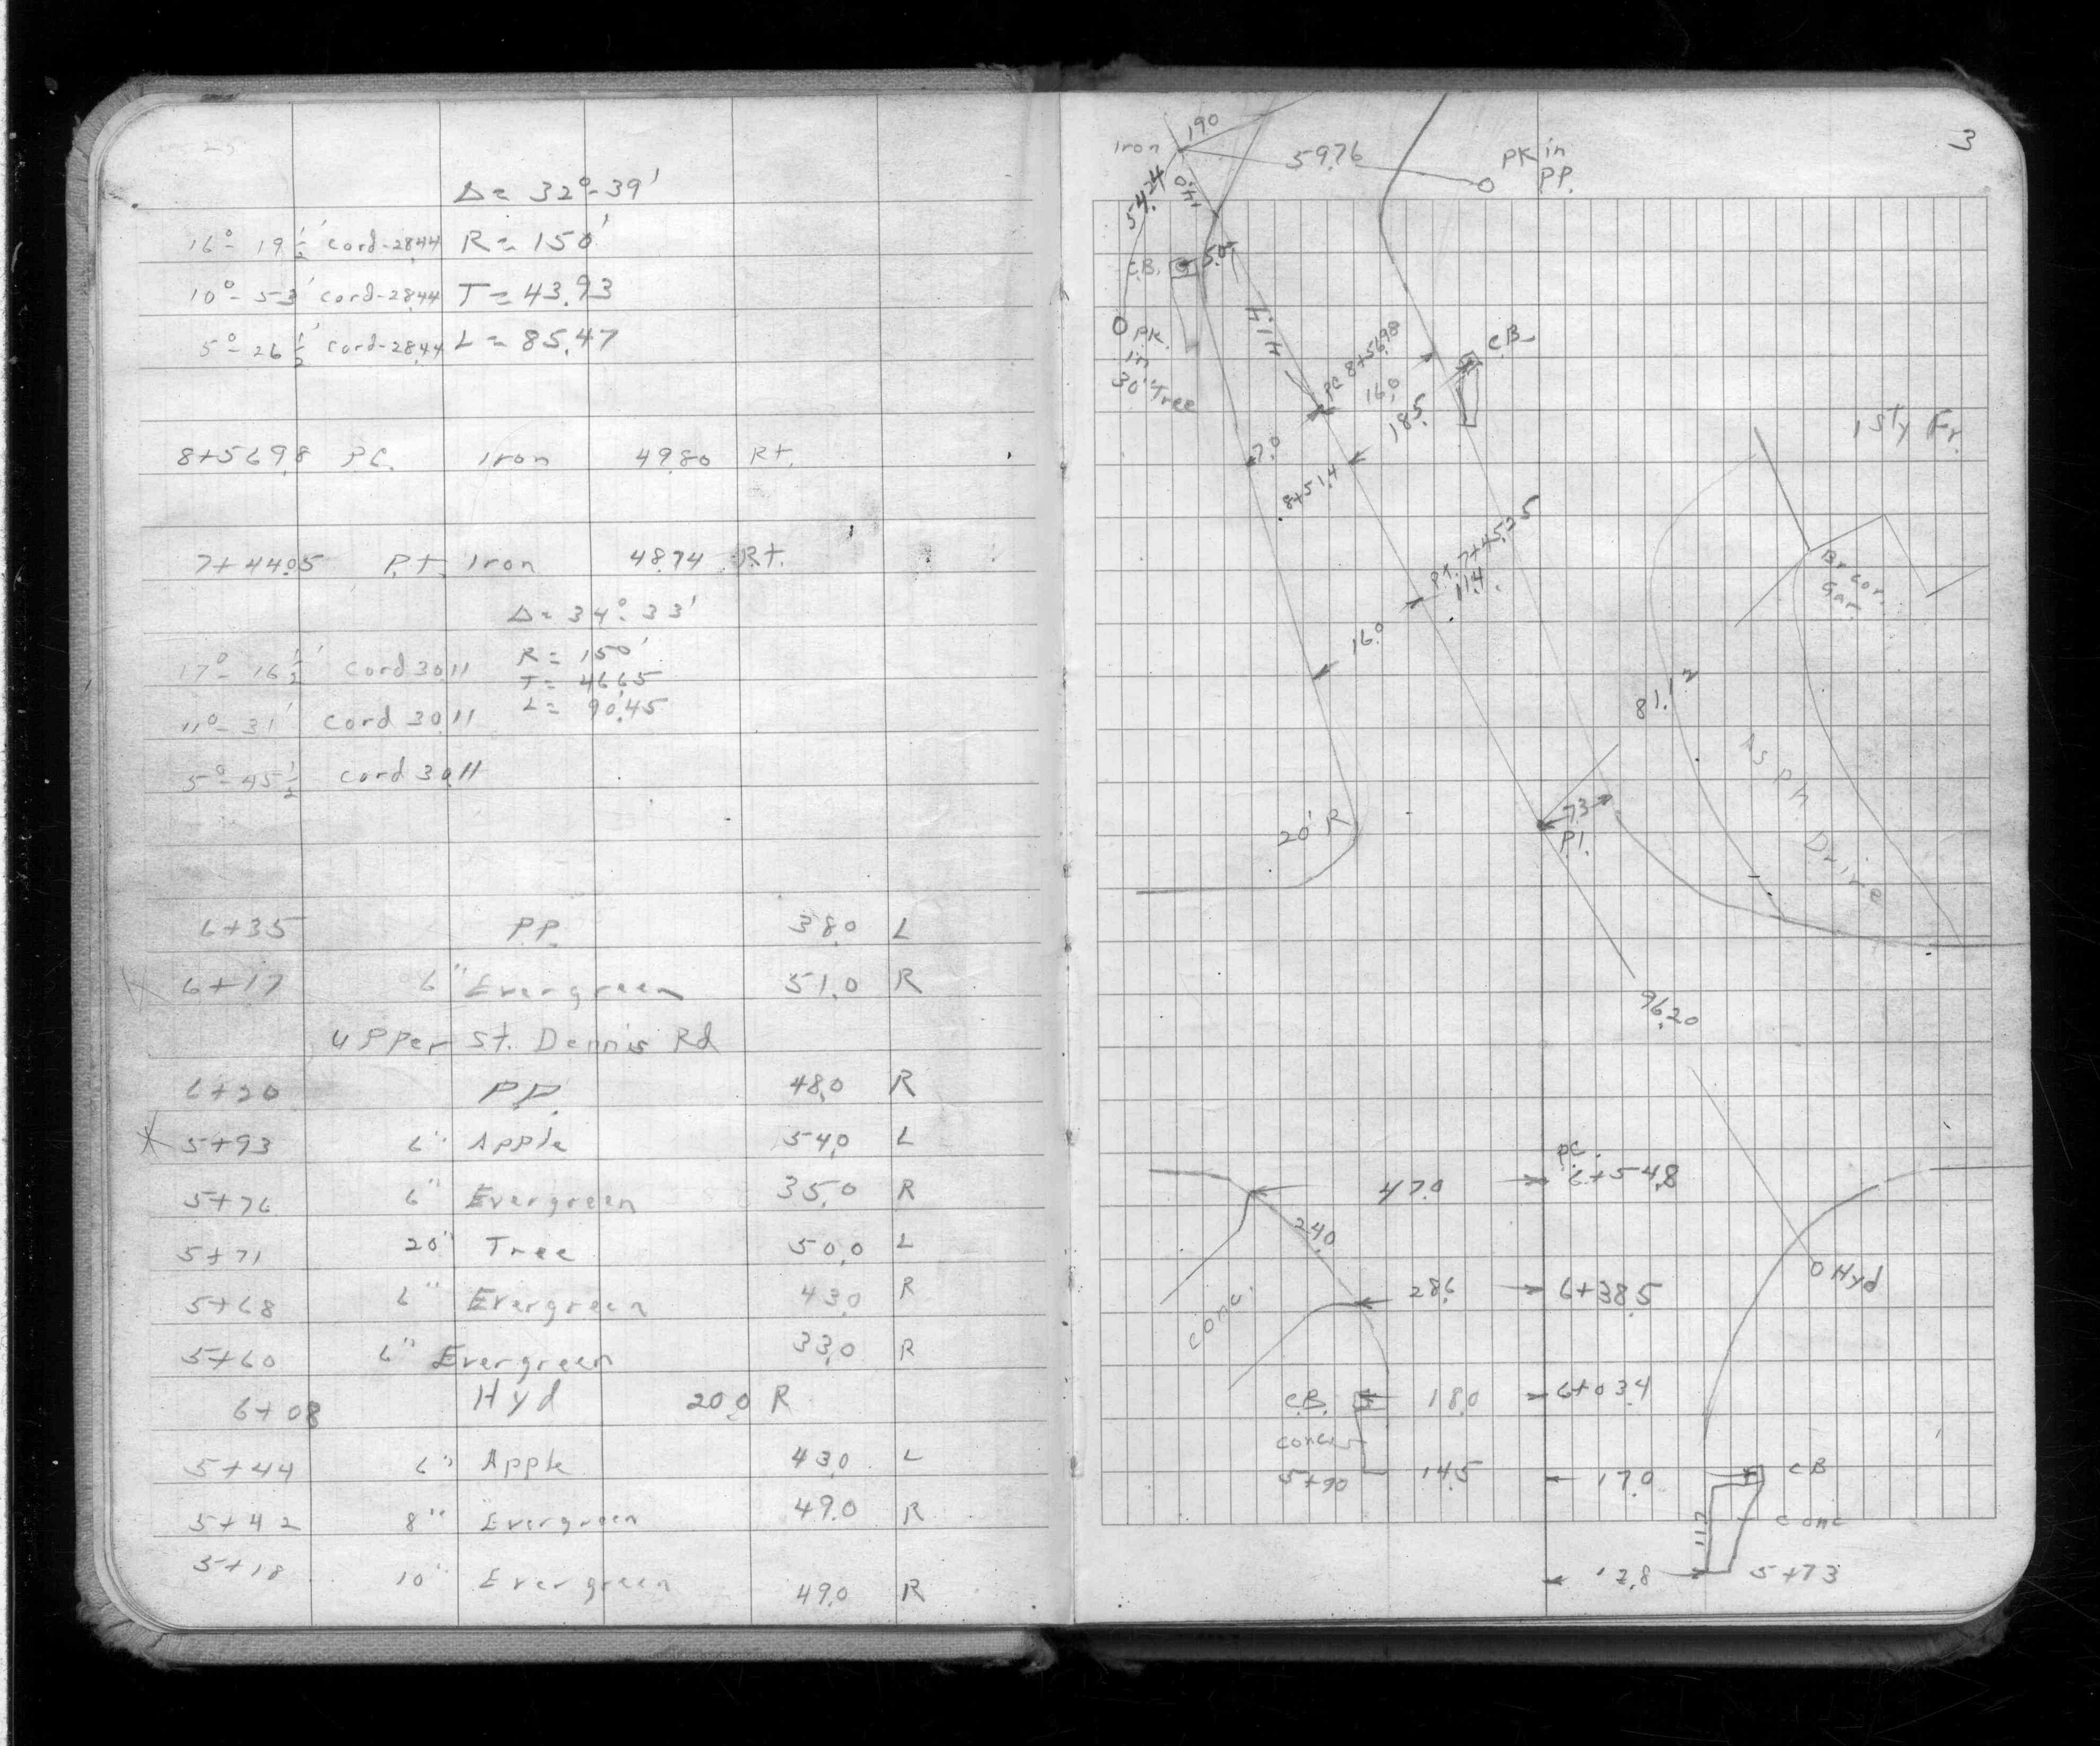 Δ = 32°-39'
16°- 19 1/2' cord-28.44 R = 150'
10°- 53' cord-28.44 T = 43.93
5°- 26 1/2' cord-28.44 L = 85.47
8+56.98 P.C. Iron 49.80 Rt.
7+44.05 P.T. Iron 48.74 Rt.
Δ = 34°-33'
17°- 16 1/2' cord 30.11 R = 150'
T = 46.65
11°- 31' cord 30.11 L = 90.45
5°- 45 1/2' cord 30.11
6+35 P.P. 38.0 L
6+17 6" Evergreen 51.0 R
Upper St. Dennis Rd
6+20 P.P. 48.0 R
5+93 6" Apple 54.0 L
5+76 6" Evergreen 35.0 R
5+71 20" Tree 50.0 L
5+68 6" Evergreen 43.0 R
5+60 6" Evergreen 33.0 R
6+08 Hyd 20.0 R
5+44 6" Apple 43.0 L
5+42 8" Evergreen 49.0 R
5+18 10" Evergreen 49.0 R
3
Iron
19.0
59.76
PK in
P.P.
54.24
14.0
C.B.
5.0
O PK.
in
30" Tree
H.1.4
PC 8+56.98
16.0
18.5
C.B.
7.0
8+51.4
1 Sty Fr.
P.T. 7+45.25
11.4
Br cor.
Gar.
16.0
81.12
Asph Drive
20' R
7.3
P.I.
96.20
P.C.
47.0
6+54.8
24.0
O Hyd
28.6
6+38.5
Conc.
C.B.
18.0
6+03.4
conc.
5+90
14.5
17.0
CB
11.7
Conc
12.8
5+73